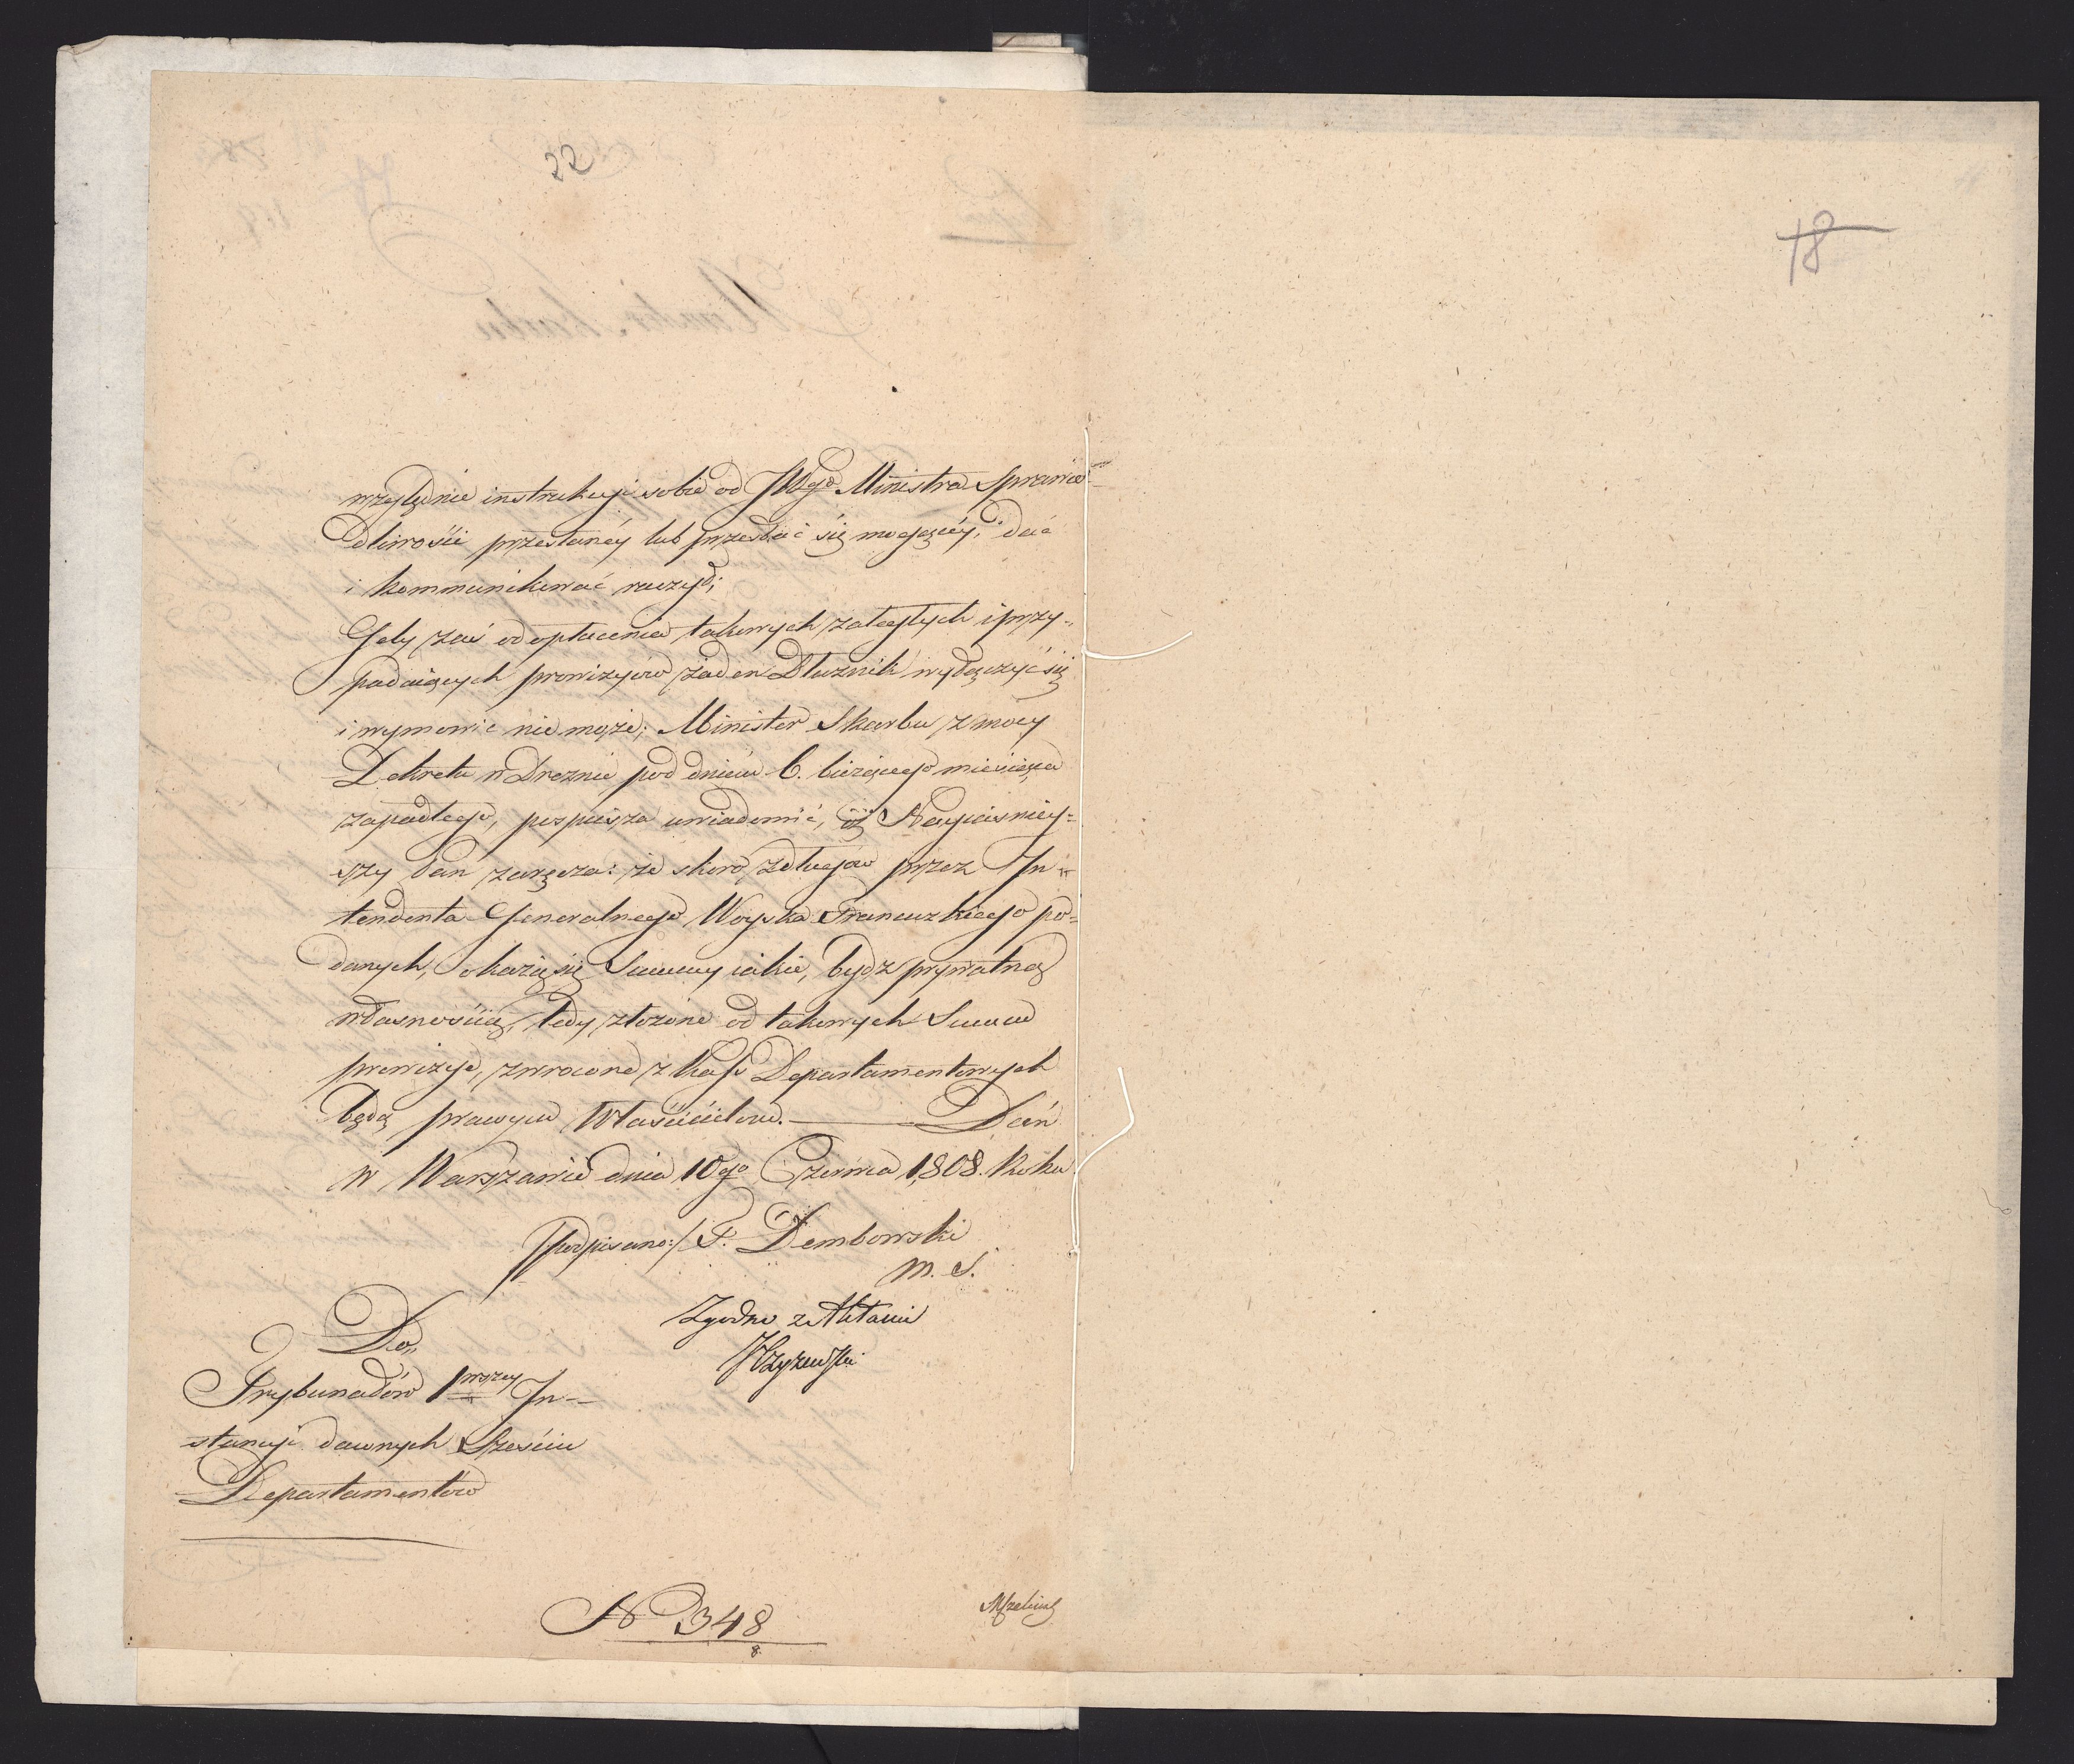 22
względnie instrukcyi sobie od JWgo Ministra Sprawie-
dliwości przesłanéy lub przesłać się maiącéy, dać
i kommunikować raczyły;
Gdy zaś od opłacenia takowych zaległych i przy-
padaiących prowizyów żaden Dłużnik wyłączyć się
i wymowić nie może; Minister Skarbu z mocy
Dekretu w Dreznie pod dniem 6. bieżącego miesiąca
zapadłego, pospiesza uwiadomić, iż Nayiaśniey-
szy Pan zaręcza: że skoro z długow przez In-
tendenta Generalnego Woyska Francuzkiego po-
danych, okażą się Summy iakie, bydź prywatną
własnością, tedy złożone od takowych Summ
prowizye, zwrocone z Kass Departamentowych
będą prawym Właścicielom. — Dań
w Warszawie dnia 10go Czerwca 1808. Roku
/podpisano:/ F. Dembowski
M. S.
Zgodno z Aktami
Do
Trybunałów 1wszey In-
stancyi dawnych Sześciu
Departamentów
N 348
8
18